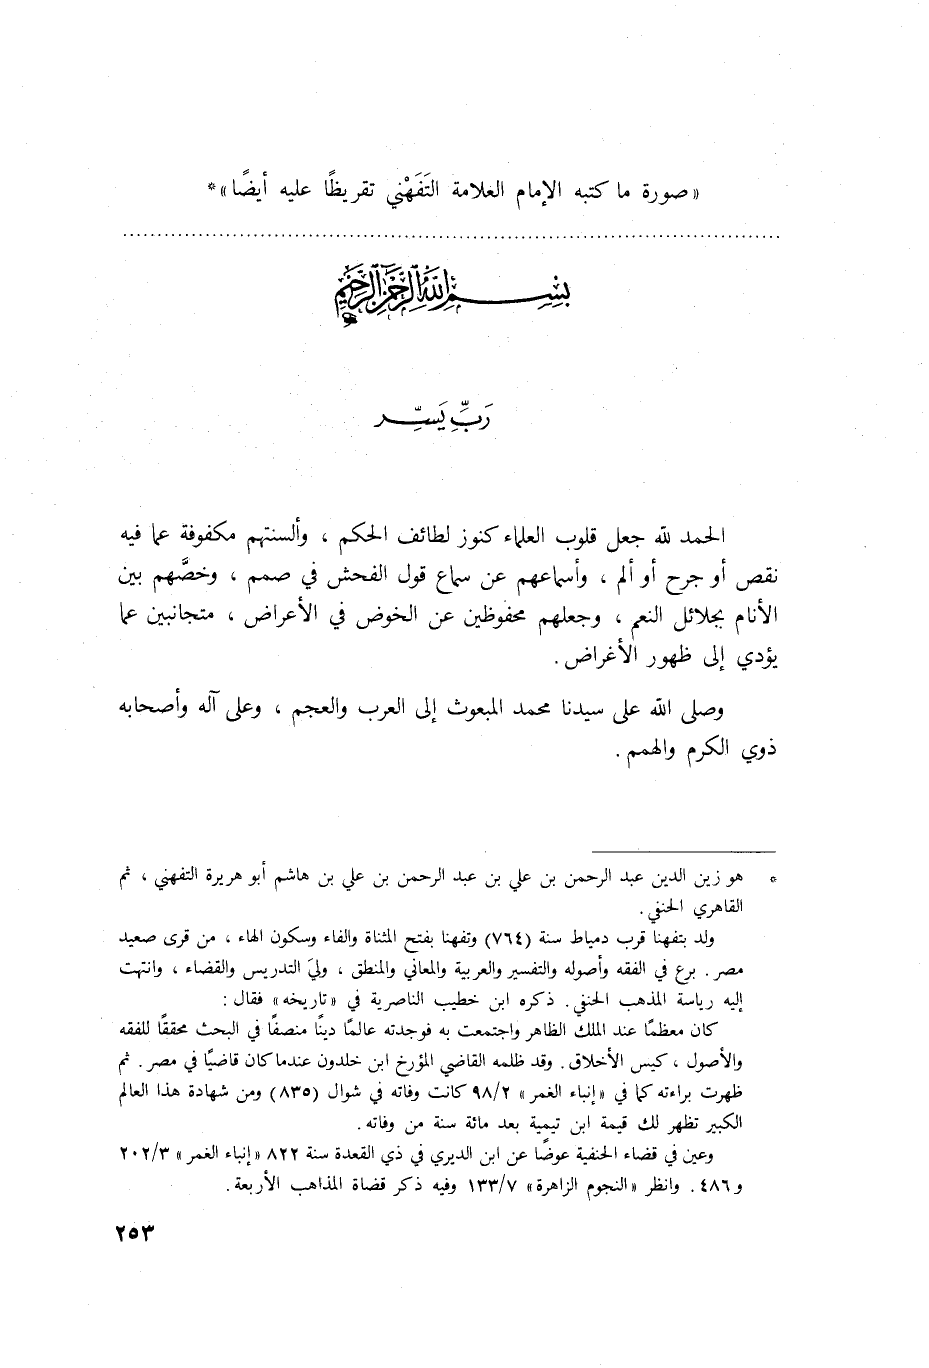 « صورة ما كتبه الإمام العلامة التَفَهْني تقريظًا عليه أيضًا »*
بسم الله الرحمن الرحيم
رَبِّ يَسِّر
الحمد لله جعل قلوب العلماء كنوز لطائف الحكم ، وألسنتهم مكفوفة عما فيه
نقص أو جرح أو ألم ، وأسماعهم عن سماع قول الفحش في صمم ، وخصَّهم بين
الأنام بجلائل النعم ، وجعلهم محفوظين عن الخوض في الأعراض ، متجانبين عما
يؤدي إلى ظهور الأغراض .
وصلى الله على سيدنا محمد المبعوث إلى العرب والعجم ، وعلى آله وأصحابه
ذوي الكرم والهمم .
* هو زين الدين عبد الرحمن بن علي بن عبد الرحمن بن علي بن هاشم أبو هريرة التفهني ، ثم
القاهري الحنفي .
ولد بتفهنا قرب دمياط سنة (٧٦٤) وتفهنا بفتح المثناة والفاء وسكون الهاء ، من قرى صعيد
مصر . برع في الفقه وأصوله والتفسير والعربية والمعاني والمنطق ، وليَ التدريس والقضاء ، وانتهت
إليه رياسة المذهب الحنفي . ذكره ابن خطيب الناصرية في «تاريخه» فقال :
كان معظمًا عند الملك الظاهر واجتمعت به فوجدته عالمًا دينًا منصفًا في البحث محققًا للفقه
والأصول ، كيس الأخلاق . وقد ظلمه القاضي المؤرخ ابن خلدون عندما كان قاضيًا في مصر . ثم
ظهرت براءته كما في «إنباء الغمر» ٩٨/٢ كانت وفاته في شوال (٨٣٥) ومن شهادة هذا العالم
الكبير تظهر لك قيمة ابن تيمية بعد مائة سنة من وفاته .
وعين في قضاء الحنفية عوضًا عن ابن الديري في ذي القعدة سنة ٨٢٢ «إنباء الغمر» ٢٠٢/٣
و ٤٨٦ . وانظر «النجوم الزاهرة» ١٣٣/٧ وفيه ذكر قضاة المذاهب الأربعة .
٢٥٣